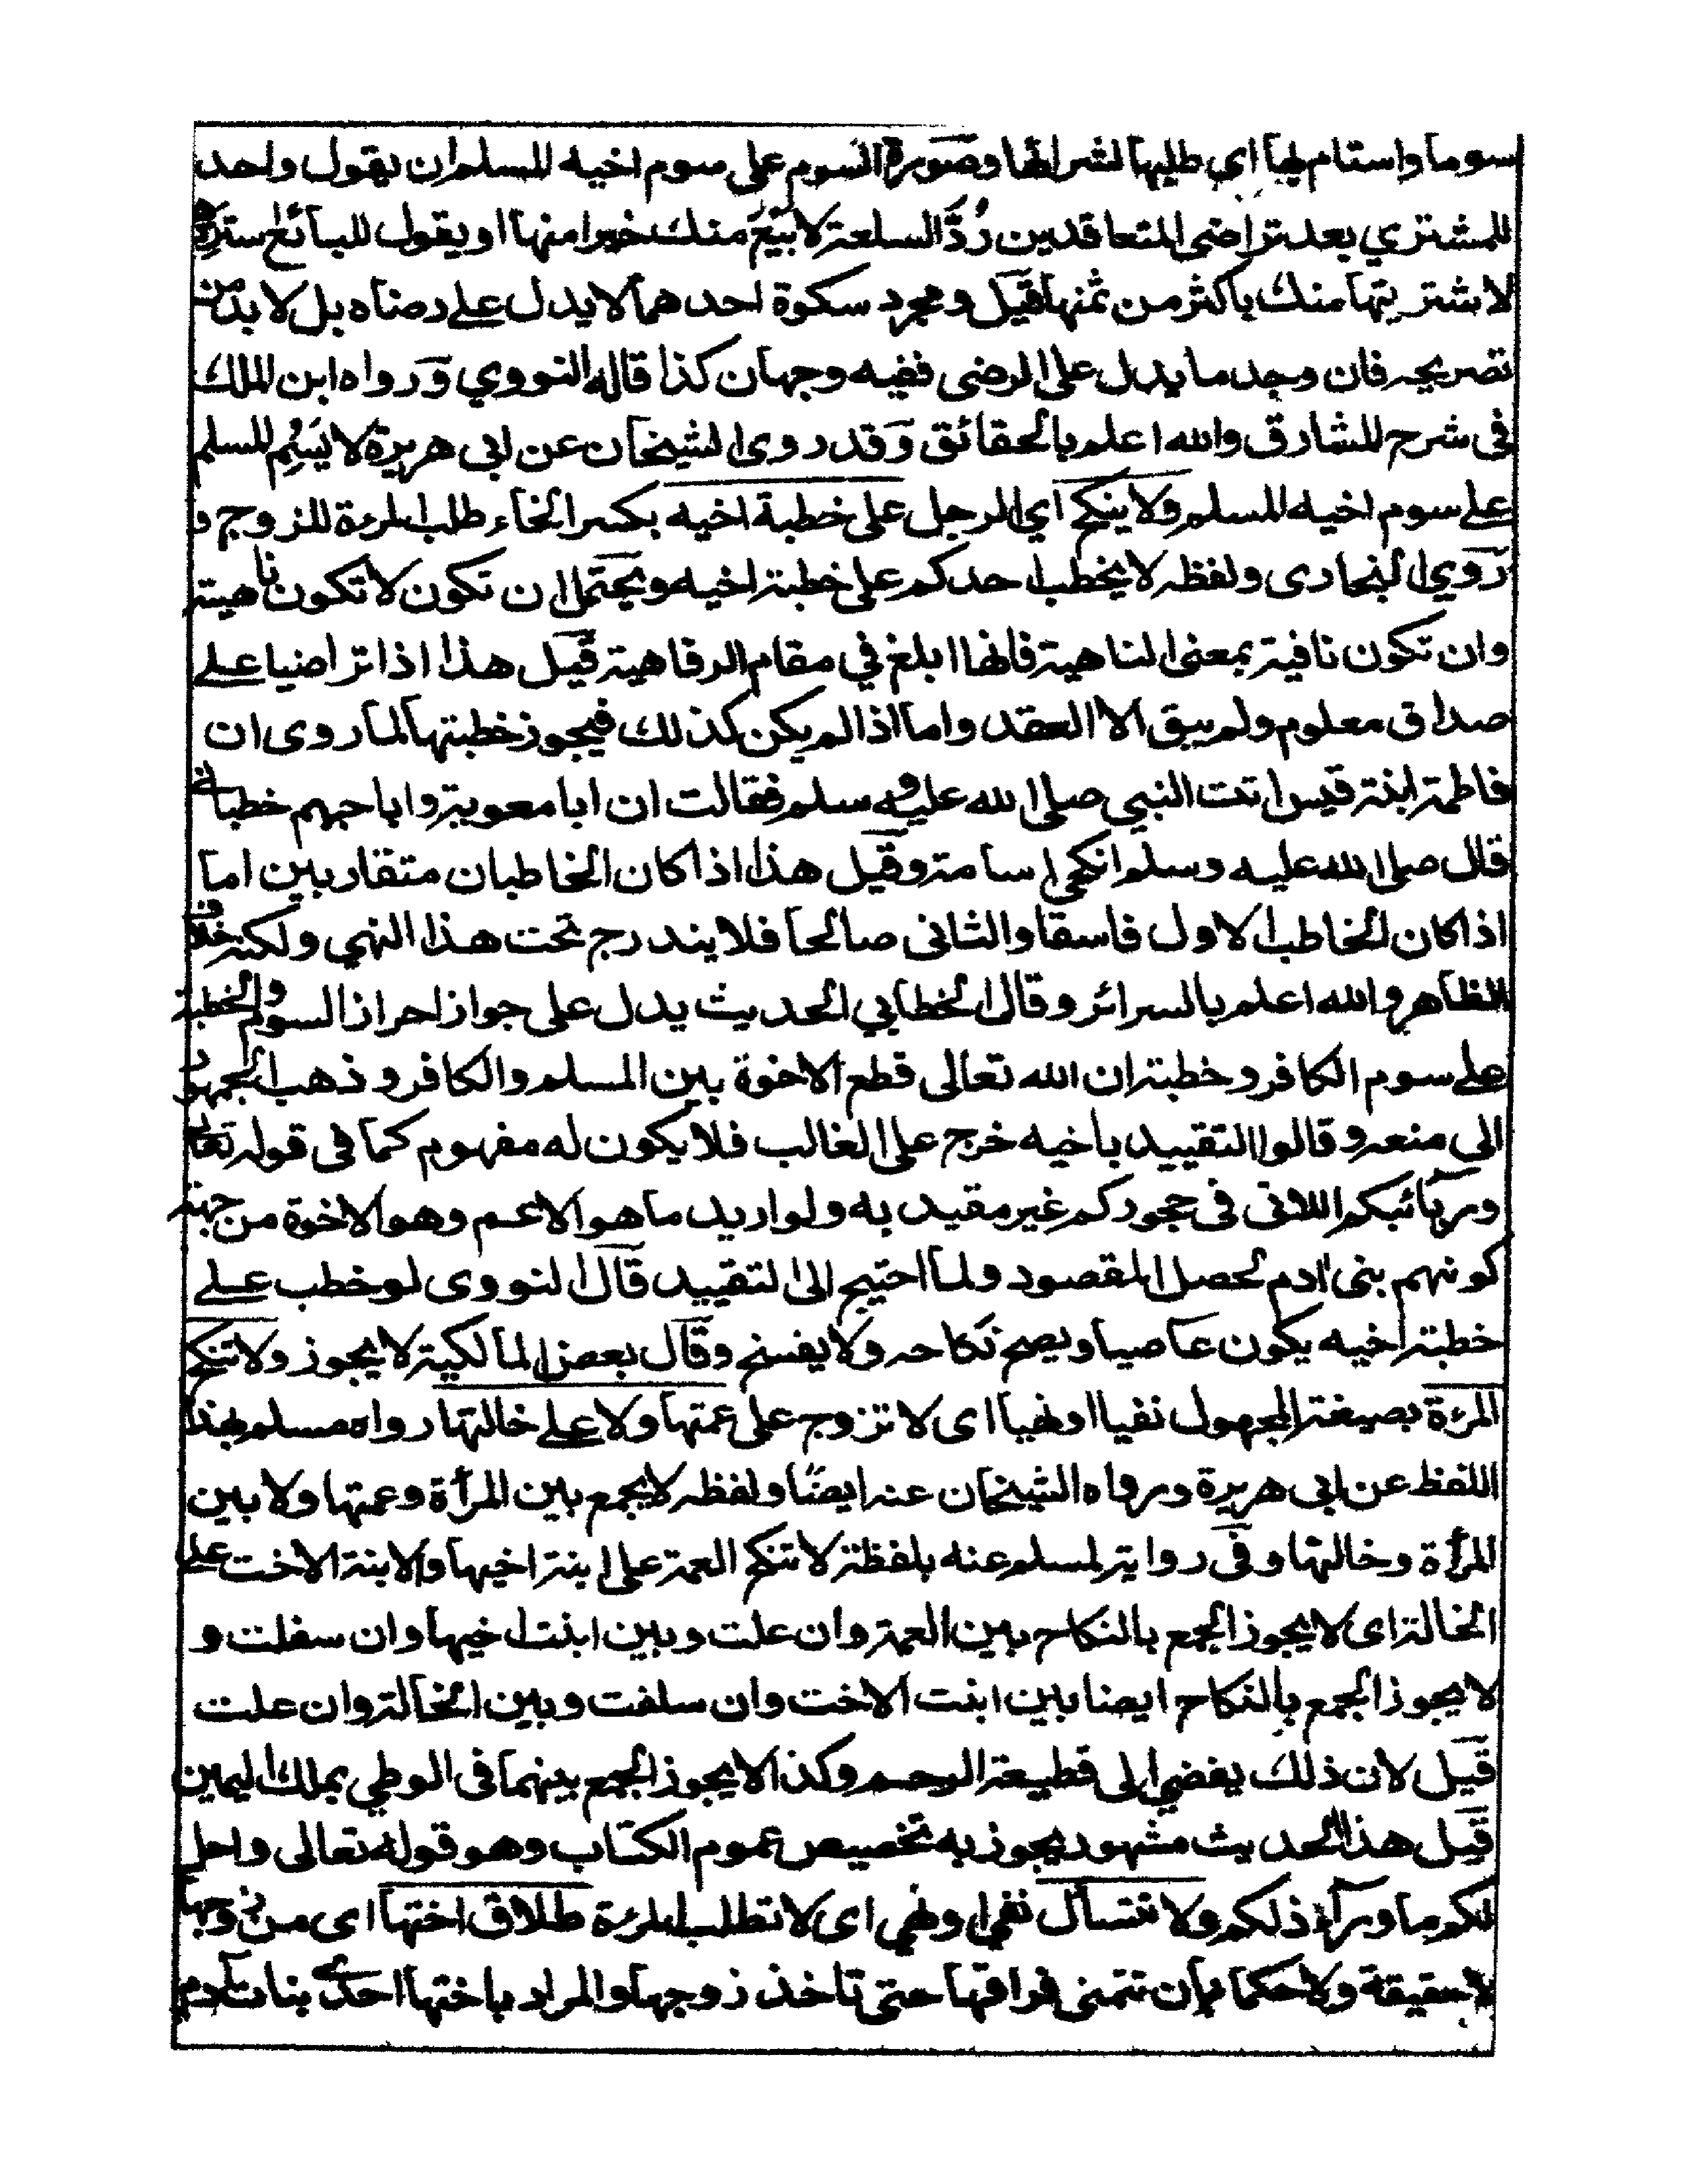 سوما واستام لها اي طلبها لشرائها وصورة السوم على سوم اخيه المسلم ان يقول واحد
للمشتري بعد تراضى المتعاقدين رُدَّ السلعة لابيع منك خيرا منها او يقول للبائع سترده
لاشتريتها منك باكثر من ثمنها قيل ومجرد سكوة احدهما لا يدل على رضاه بل لا بد من
تصريحه فان وجد ما يدل على الرضى ففيه وجهان كذا قاله النووي ورواه ابن الملك
فى شرح المشارق والله اعلم بالحقائق وقد روى الشيخان عن ابى هريرة لا يَسُمِ المسلم
على سوم اخيه المسلم ولا ينكح اي الرجل على خطبة اخيه بكسر الخاء طلب المرءة للزوج و
روي البخارى ولفظه لا يخطب احدكم على خطبة اخيه ويحتمل ان تكون لا تكون ناهية
وان تكون نافية بمعنى الناهية فانها ابلغ في مقام الرفاهية قيل هذا اذا تراضيا على
صداق معلوم ولم يبق الا العقد واما اذا لم يكن كذلك فيجوز خطبتها لما روى ان
فاطمة ابنة قيس اتت النبي صلى الله عليه وسلم فقالت ان ابا معوية وابا جهم خطباني
قال صلى الله عليه وسلم انكحى اسامة وقيل هذا اذا كان الخاطبان متقاربين اما
اذا كان الخاطب الاول فاسقا والثانى صالحا فلا يندرج تحت هذا النهي ولكنه خلاف
الظاهر والله اعلم بالسرائر وقال الخطابي الحديث يدل على جواز احراز السوم والخطبة
على سوم الكافر وخطبة ان الله تعالى قطع الاخوة بين المسلم والكافر وذهب الجمهور
الى منعه وقالوا التقييد باخيه خرج على الغالب فلا يكون له مفهوم كما فى قوله تعالى
وربائبكم اللاتى فى حجوركم غير مقيد به ولو اريد ما هو الاعم وهو الاخوة من جهة
كونهم بنى ادم لحصل المقصود ولما احتيج الى التقييد قال النووى لو خطب على
خطبة اخيه يكون عاصيا ويصح نكاحه ولا يفسخ وقال بعض المالكية لا يجوز ولا تنكح
المرءة بصيغة المجهول نفيا او نهيا اى لا تزوج على عمتها ولا على خالتها رواه مسلم بهذا
اللفظ عن ابى هريرة ورواه الشيخان عنه ايضًا ولفظه لا يجمع بين المرأة وعمتها ولا بين
المرأة وخالتها وفى رواية لمسلم عنه بلفظة لا تنكح العمة على ابنة اخيها ولا ابنة الاخت على
الخالة اى لا يجوز الجمع بالنكاح بين العمة وان علت وبين ابنت اخيها وان سفلت و
لا يجوز الجمع بالنكاح ايضا بين ابنت الاخت وان سلفت وبين الخالة وان علت
قيل لان ذلك يفضي الى قطيعة الرحم وكذا لا يجوز الجمع بينهما فى الوطي بملك اليمين
قيل هذا الحديث مشهور يجوز به تخصيص عموم الكتاب وهو قوله تعالى واحل
لكم ما وراء ذلكم ولا تتسأل نفى او نهي اى لا تطلب المرءة طلاق اختها اى من زوجها
لا حقيقة ولا حكما بان تتمنى فراقها حتى تاخذ زوجها والمراد باختها احدى بنات آدم